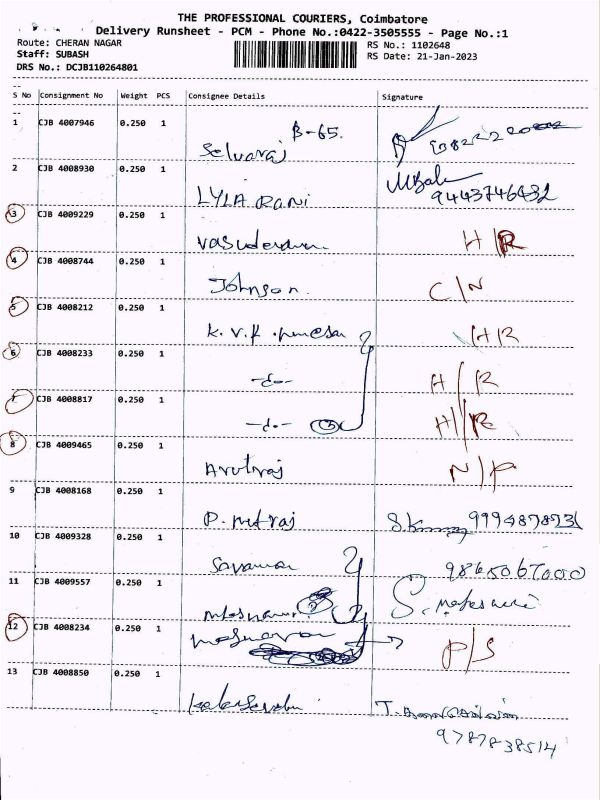 THE PROFESSIONAL COURIERS, Coimbatore
Delivery Runsheet - PCM - Phone No.:0422-3505555 - Page No.:1
Route: CHERAN NAGAR RS No.: 1102648
Staff: SUBASH RS Date: 21-Jan-2023
DRS No.: DCJB110264801
S No Consignment No Weight PCS Consignee Details Signature
1 CJB 4007946 0.250 1 B-65.
Selvaraj
2 CJB 4008930 0.250 1
LYLA RANI 9443746432
3 CJB 4009229 0.250 1
H/R
4 CJB 4008744 0.250 1
Johnson. C/N
5 CJB 4008212 0.250 1
K.V.K. H/R
6 CJB 4008233 0.250 1
-do- H/R
7 CJB 4008817 0.250 1
-do- 3 H/R
8 CJB 4009465 0.250 1
Arutraj N/P
9 CJB 4008168 0.250 1
10 CJB 4009328 0.250 1
9865067000
11 CJB 4009557 0.250 1
12 CJB 4008234 0.250 1
P/S
13 CJB 4008850 0.250 1
9787838514